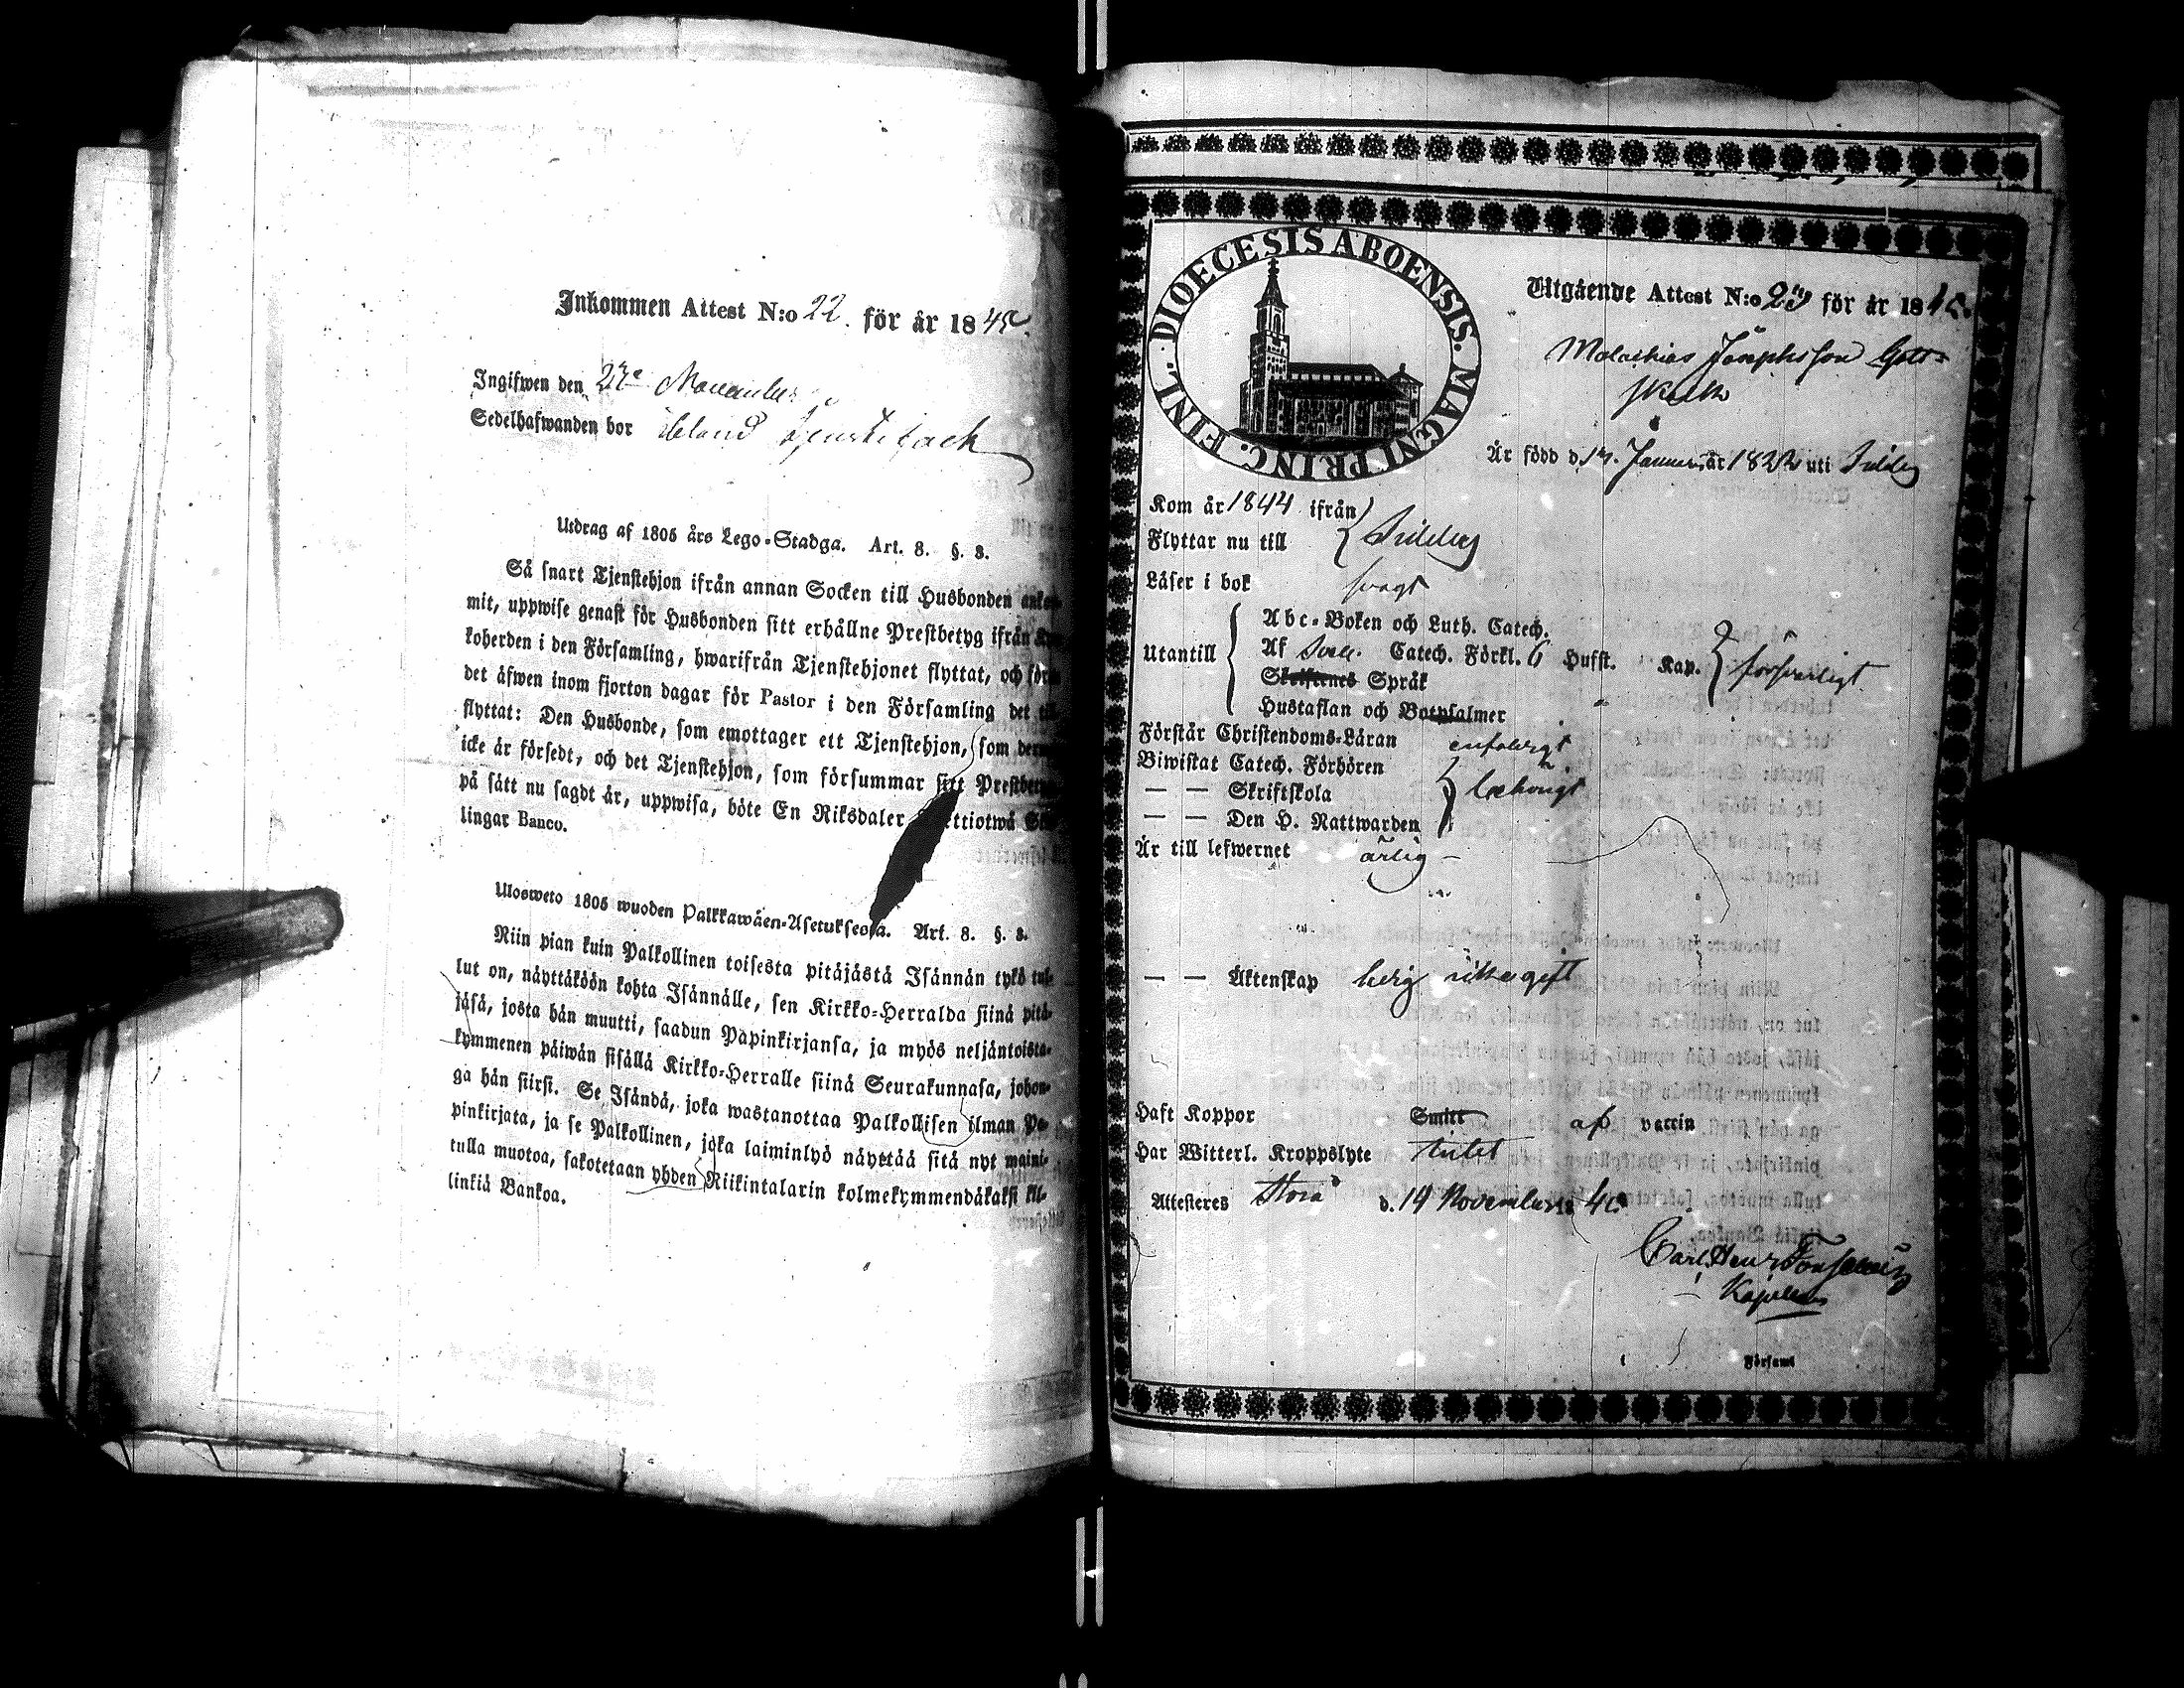 Inkommen Attest N:o 22. för år 1845.
Ingifwen den 23e November
Sedelhafwanden bor
Utdrag af 1805 års Lego-Stadga. Art. 8. §. 3.
Så snart Tjenstehjon ifrån annan Socken till Husbonden
mit, uppwise genast för Husbonden sitt erhållne Prestbetyg ifrån
koherden i den Församling, hwarifrån Tjenstehjonet flyttat, och
det äfwen inom fjorton dagar för Pastor i den Församling det
flyttat: Den Husbonde, som emottager ett Tjenstehjon, som
icke är försedt, och det Tjenstehjon, som försummar sitt
på sätt nu sagdt är, uppwisa, böte En Riksdaler
lingar Banco.
Ulosweto 1805 wuoden Palkkawäen-Asetuksesta. Art. 8. §. 3.
Niin pian kuin Palkollinen toisesta pitäjästä Isännän tykö tul-
lut on, näyttäköön kohta Isännälle, sen Kirkko-Herralda siinä pitä-
jäsä, josta hän muutti, saadun Papinkirjansa, ja myös neljäntoista-
kymmenen päiwän sisällä Kirkko-Herralle siinä Seurakunnasa, johon-
ga hän siirsi. Se Isändä, joka wastanottaa Palkollisen ilman Pa-
pinkirjata, ja se Palkollinen, joka laiminlyö näyttää sitä nyt maini-
tulla muotoa, sakotetaan yhden Riikintalarin kolmekymmendäkaksi kil-
linkiä Bankoa.
DIOECESIS ABOENSIS. MAGNI PRINC. FINL.
Utgående Attest N:o för år 18
Malachias Josephsson Gott-
skalk
Är född d. Januari år 1822 uti Sideby
Kom år 1844 ifrån
Flyttar nu till Sideby
Läser i bok svagt
Utantill
Abc-Boken och Luth. Catech.
Af Sveb. Catech. Förkl. 6 Hufst. Kap. försvarligt
Skriftenes Språk
Hustaflan och Botpsalmer
Förstår Christendoms-Läran enfaldigt
Biwistat Catech. Förhören
— — Skriftskola behörigt
— — Den H. Nattwarden
Är till lefwernet ärlig —
— — Äktenskap ledig icke gift
Haft Koppor Smitt af vaccin
Har Witterl. Kroppslyte intet
Attesteres d. 14 November 18
Carl Henr Forselius
Kapellan
Församl